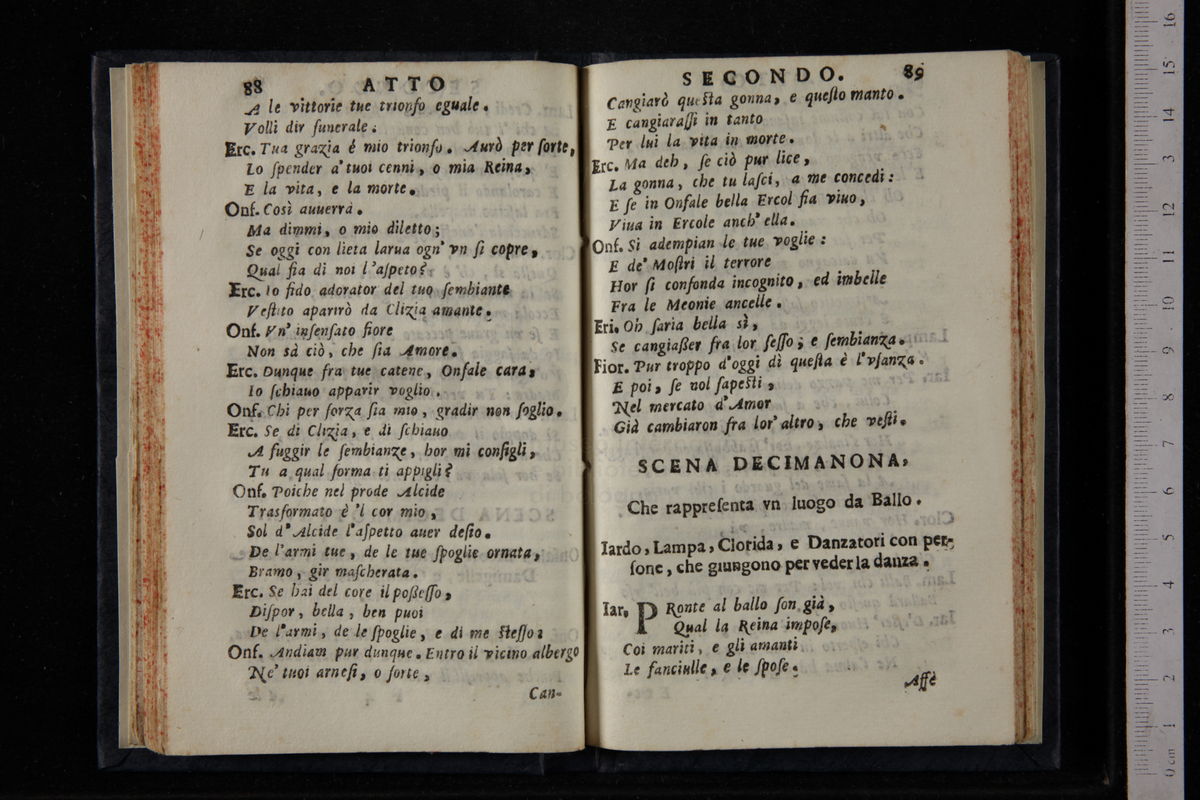 88 ATTO
A le vittorie tue trionfo eguale.
Volli dir funerale.
Erc. Tua grazia é mio trionfo. Aurò per ſorte,
Lo ſpender a' tuoi cenni, o mia Reina,
E la vita, e la morte.
Onf. Così auuerrà.
Ma dimmi, o mio diletto;
Se oggi con lieta larua ogn' vn ſi copre,
Qual ſia di noi l'aſpeto?
Erc. Io fido adorator del tuo ſembiante
Veſtito aparirò da Clizia amante.
Onf. Vn' inſenſato fiore
Non sà ciò, che ſia Amore.
Erc. Dunque fra tue catene, Onfale cara,
Io ſchiauo apparir voglio.
Onf. Chi per forza ſia mio, gradir non ſoglio.
Erc. Se di Clizia, e di ſchiauo
A fuggir le ſembianze, hor mi conſigli,
Tu a qual forma ti appigli?
Onf. Poiche nel prode Alcide
Trasformato è 'l cor mio,
Sol d' Alcide l'aſpetto auer deſio.
De l'armi tue, de le tue ſpoglie ornata,
Bramo, gir maſcherata.
Erc. Se hai del core il poßeſſo,
Diſpor, bella, ben puoi
De l'armi, de le ſpoglie, e di me ſteſſo:
Onf. Andiam pur dunque. Entro il vicino albergo
Ne' tuoi arneſi, o forte,
Can-
SECONDO. 89
Cangiarò queſta gonna, e queſto manto.
E cangiaraſſi in tanto
Per lui la vita in morte.
Erc. Ma deh, ſe ciò pur lice,
La gonna, che tu laſci, a me concedi:
E ſe in Onfale bella Ercol ſia viuo,
Viua in Ercole anch' ella.
Onf. Si adempian le tue voglie:
E de' Moſtri il terrore
Hor ſi confonda incognito, ed imbelle
Fra le Meonie ancelle.
Eri. Oh ſaria bella sì,
Se cangiaßer fra lor ſeſſo; e ſembianza.
Fior. Pur troppo d'oggi dì queſta è l'vſanza.
E poi, ſe nol ſapeſti,
Nel mercato d'Amor
Già cambiaron fra lor' altro, che veſti.
SCENA DECIMANONA,
Che rappreſenta vn luogo da Ballo.
Iardo, Lampa, Clorida, e Danzatori con per-
ſone, che giungono per veder la danza.
Iar. PRonte al ballo ſon già,
Qual la Reina impoſe,
Coi mariti, e gli amanti
Le fanciulle, e le ſpoſe.
Affè
0 cm 1 2 3 4 5 6 7 8 9 10 11 12 13 14 15 16